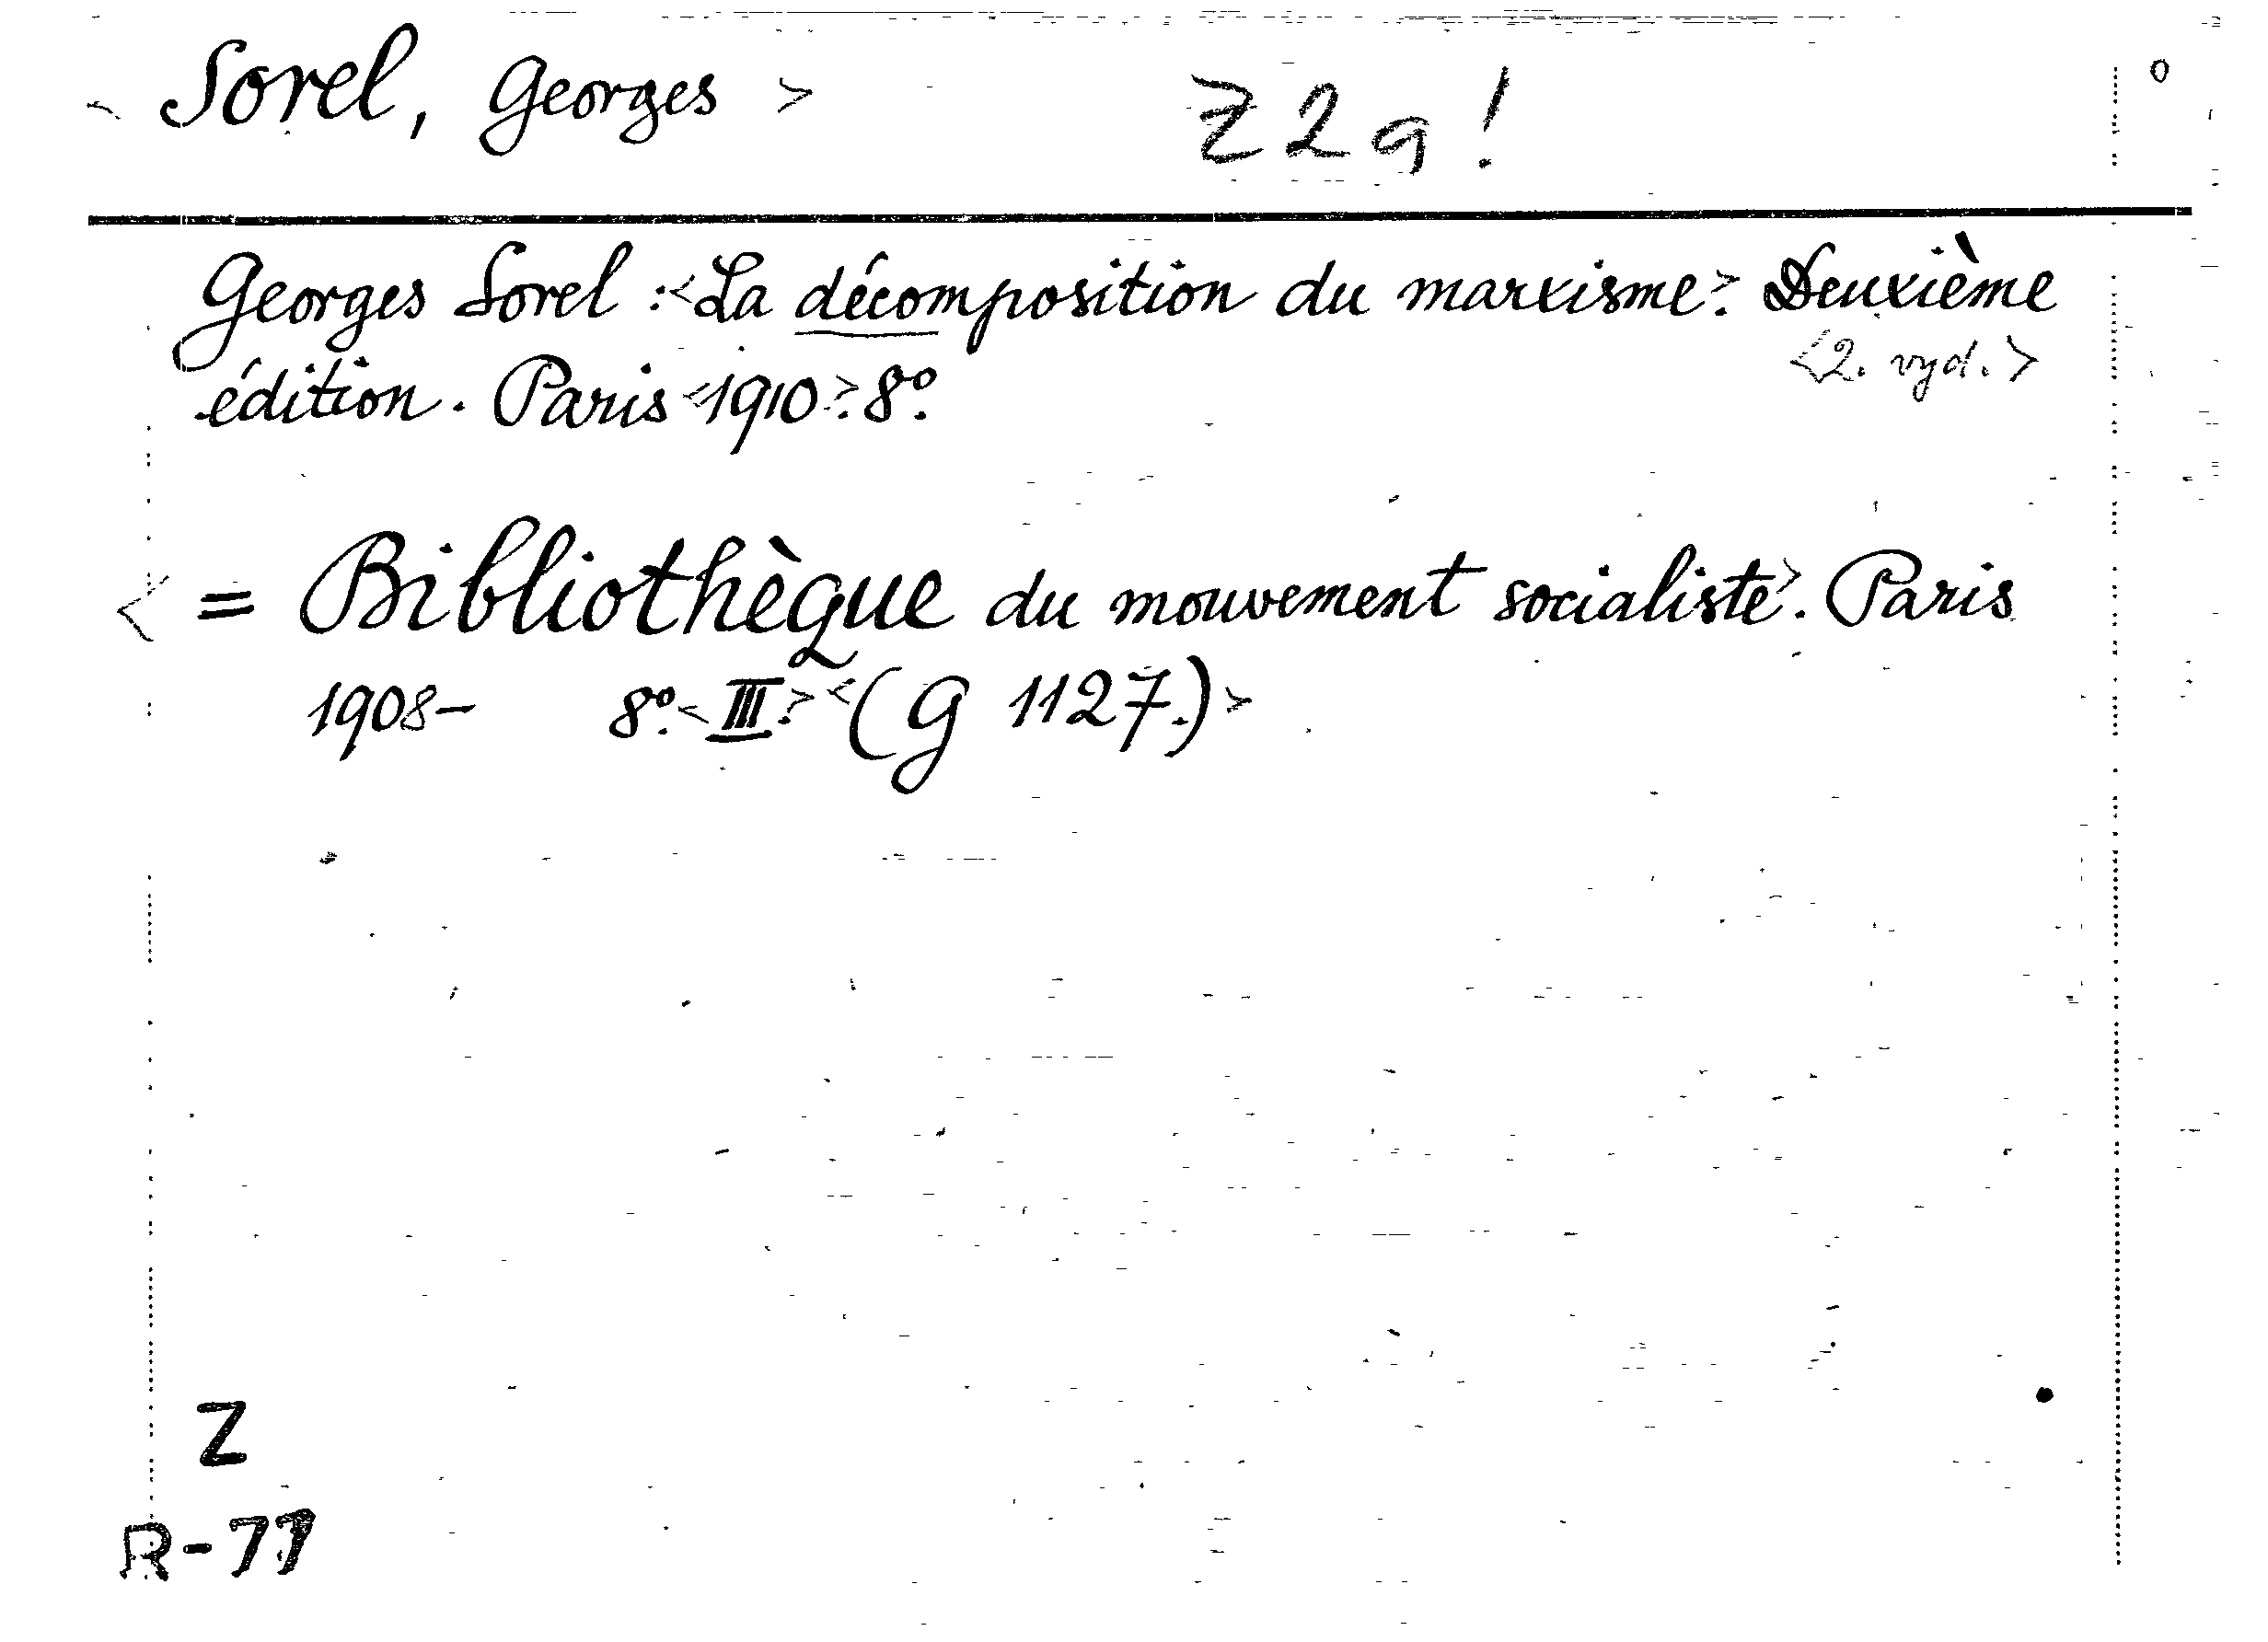 Sorel, Georges > Z 2 a !
Georges Sorel : <La décomposition du marxisme>. Deuxième
<2. vyd.>
édition. Paris <1910>. 8°.
< = Bibliothèque du mouvement socialiste>. Paris
1908- 8°. <III.> <(G 1127.)>
Z
R-77